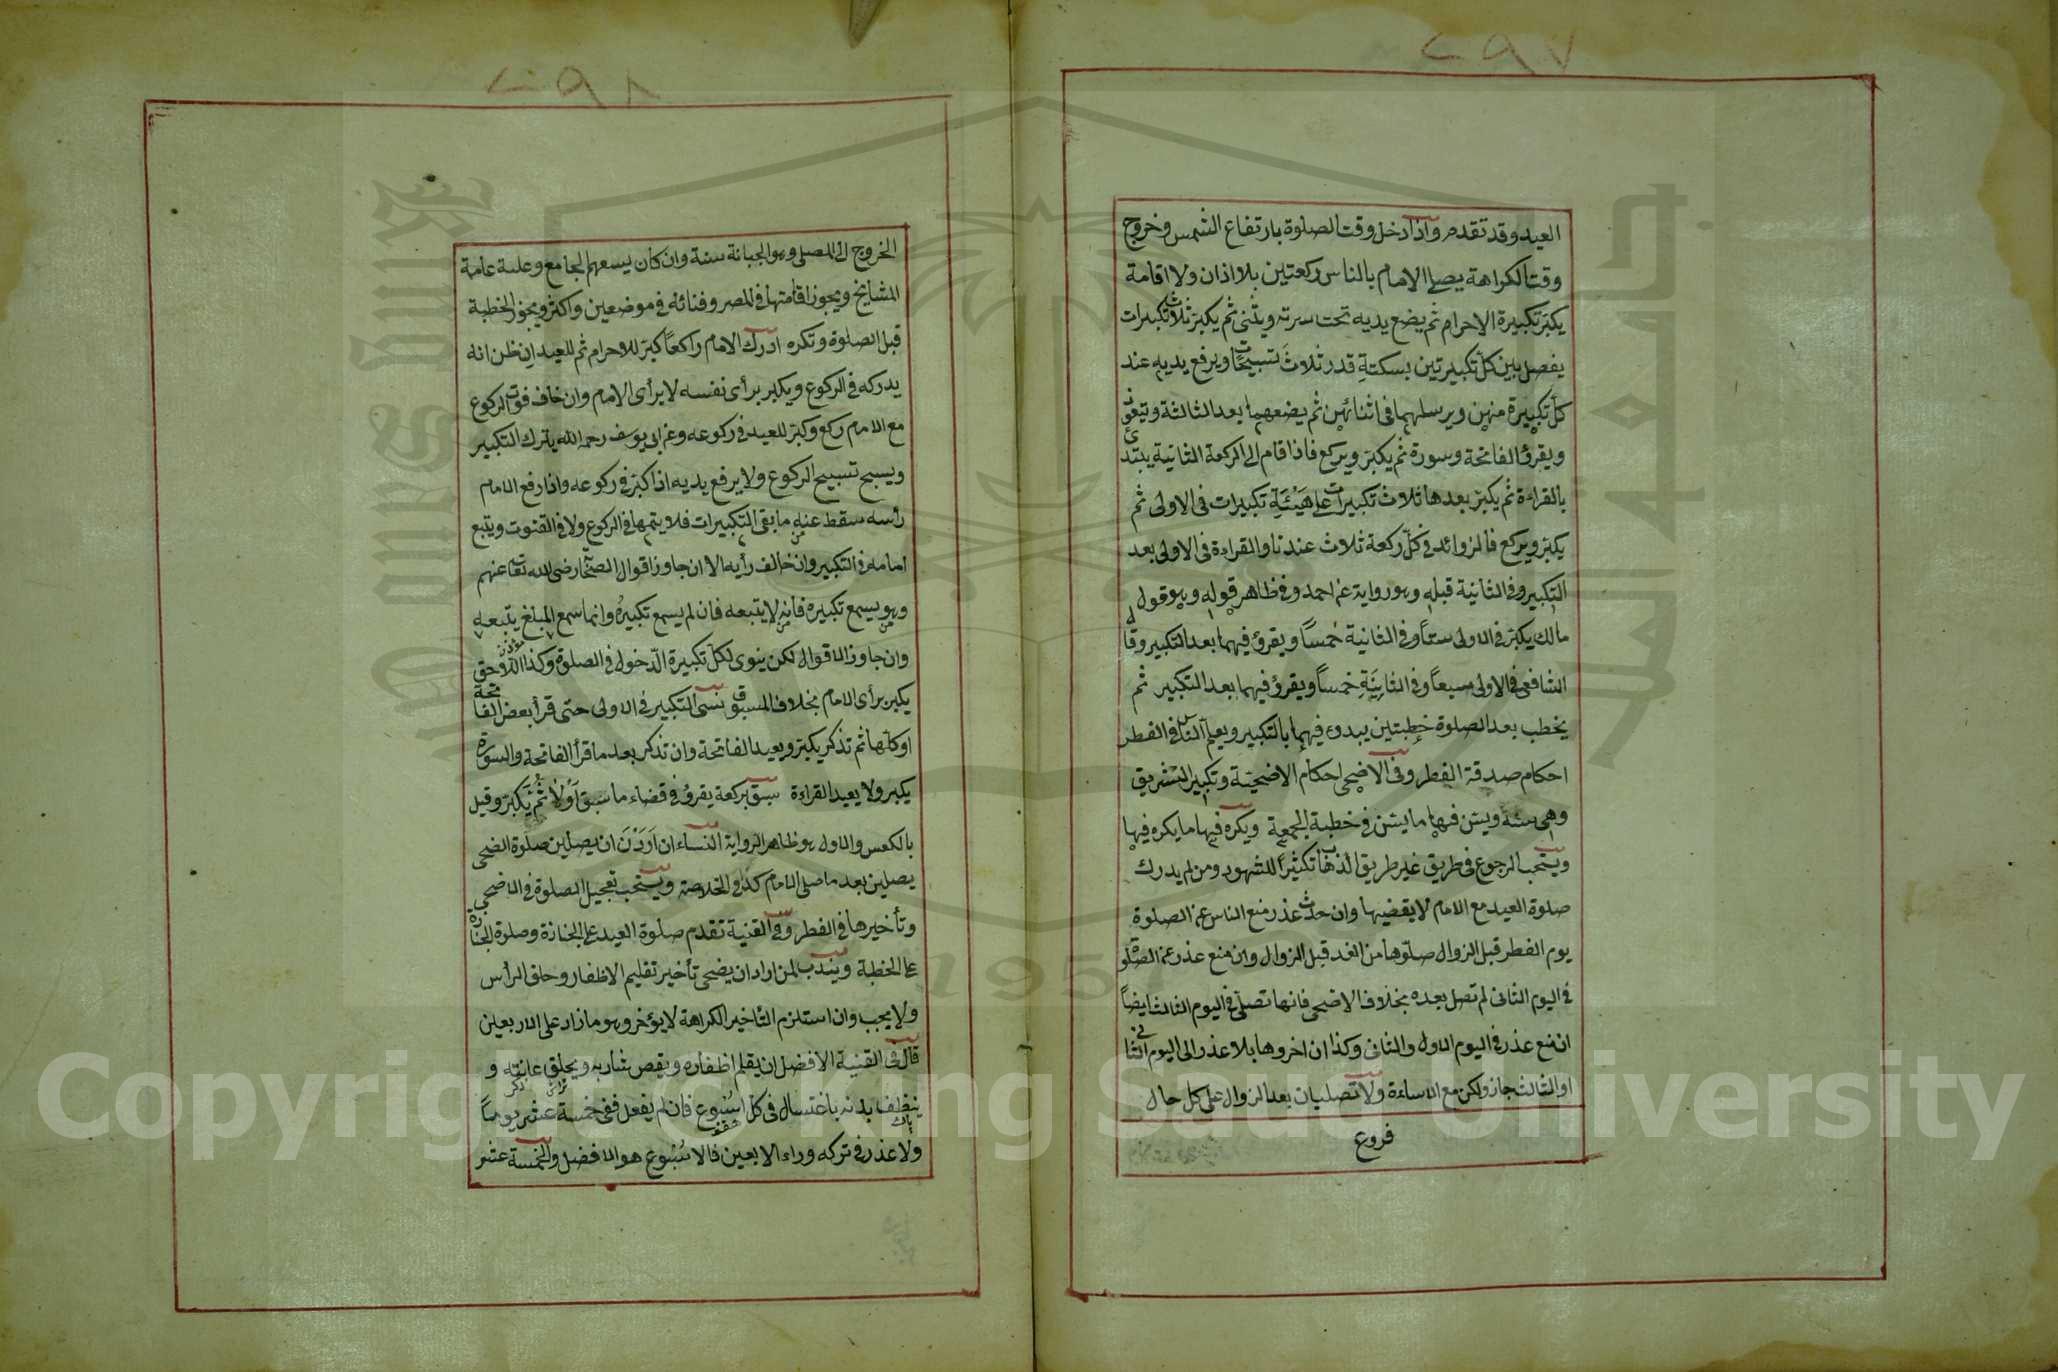 ٢٩٧
العيد وقد تقدم واذا دخل وقت الصلوة بارتفاع الشمس وخروج
وقت الكراهة يصلى الامام بالناس ركعتين بلا اذان ولا اقامة
يكبر تكبيرة الاحرام ثم يضع يديه تحت سرته ويثنى ثم يكبر ثلاث تكبيرات
يفصل بين كل تكبيرتين بسكتة قدر ثلاث تسبيحات ويرفع يديه عند
كل تكبيرة منهن ويرسلهما فى اثنائهن ثم يضعهما بعد الثالثة ويتعوذ
ويقرؤ الفاتحة وسورة ثم يكبر ويركع فاذا قام الى الركعة الثانية يبتدئ
بالقراءة ثم يكبر بعدها ثلاث تكبيرات على هَيْئَةِ تكبيرات فى الاولى ثم
يكبر ويركع فالزوائد فى كلّ ركعة ثلاث عندنا والقراءة فى الاولى بعد
التكبير وفى الثانية قبله وهو رواية عن احمد وفى ظاهر قوله وهو قول
مالك يكبّر فى الاولى ستاً وفى الثانية خمساً ويقرؤ فيهما بعد التكبير وقال
الشافعى فى الاولى سبعاً وفى الثانِيَةِ خمساً ويقرؤ فيهما بعد التكبير ثم
يخطب بعد الصلوة خطبتين يبدء فيهما بالتكبير ويعلم الناس فى الفطر
احكام صدقة الفطر وفى الاضحى احكام الاضحيّة وتكبير التشريق
وهى سنّة ويسن فيها ما يسن فى خطبة الجمعة ويكره فيها ما يكره فيها
ويستحب الرجوع فى طريق غير طريق الذهاب تكثيراً للشهود ومن لم يدرك
صلوة العيد مع الامام لا يقضيها وان حدث عذر منع الناس عن الصلوة
يوم الفطر قبل الزوال صلّوها من الغد قبل الزوال وان منع عذر عن الصلوة
فى اليوم الثانى لم تصل بعده بخلاف الاضحى فانها تصلّى فى اليوم الثالث ايضاً
ان منع عذر فى اليوم الاول والثانى وكذا ان اخروها بلا عذر الى اليوم الثانى
او الثالث جاز ولكن مع الاساءة ولا تصليان بعد الزوال على كل حال
فروع
٢٩٨
الخروج الى المصلى وهو الجبانة سنة وان كان يسعهم الجامع وعليه عامة
المشايخ ويجوز اقامتها فى المصر وفنائه فى موضعين واكثر ويجوز الخطبة
قبل الصلوة وتكره ادرك الامام راكعاً كبر للاحرام ثم للعيد ان ظن انه
يدركه فى الركوع ويكبر برأى نفسه لا برأى الامام وان خاف فوت الركوع
مع الامام ركع وكبّر للعيد فى ركوعه وعن ابى يوسف رحمه الله يترك التكبير
ويسبح تسبيح الركوع ولا يرفع يديه اذا كبّر فى ركوعه واذا رفع الامام
رأسه سقط عنه ما بقى من التكبيرات فلا يتمها فى الركوع ولا فى القنوت ويتبع
امامه فى التكبير وان خالف رأيه الا ان جاوز اقوال الصحابة رضى الله تعالى عنهم
وهو يسمع تكبيره فانه لا يتبعه فان لم يسمع تكبيرهُ وانما سمع المبلغ يتبعه
وان جاوز الاقوال لكن ينوى لكلّ تكبيرة الدّخول فى الصلوة وكذا اللاحق
يكبر برأى الامام بخلاف المسبوق نسى التكبير فى الاولى حتى قرأ بعض الفاتحة
او كلّها ثم تذكر يكبر ويعيد الفاتحة وان تذكر بعد ما قرأ الفاتحة والسورة
يكبر ولا يعيد القراءة سبق بركعة يقرؤ فى قضاء ما سبق اوّلاً ثُمّ يُكبِّر وقيل
بالعكس والاول هو ظاهر الرواية النساء ان اَرَدْنَ ان يصلين صلوة الضحى
يصلين بعد ما صلى الامام كذا فى الخلاصة ويستحب تعجيل الصلوة فى الاضحى
وتأخيرها فى الفطر وفى القنية تقدم صلوة العيد على الجنازة وصلوة الجنازة
على الخطبة ويندب لمن اراد ان يضحى تأخير تقليم الاظفار وحلق الرأس
ولا يجب وان استلزم التأخير الكراهة لا يؤخر وهو ما زاد على الاربعين
قال فى القنية الافضل ان يقلم اظفاره ويقص شاربه ويحلق عانته و
ينظف بدنه باغتسال فى كلّ اسْبُوع فان لم يفعل ففى خمسة عشر يوماً
ولا عذر فى تركه وراء الاربعين فالاسْبُوع هو الافضل والخمسة عشر
Copyright © King Saud University
1957